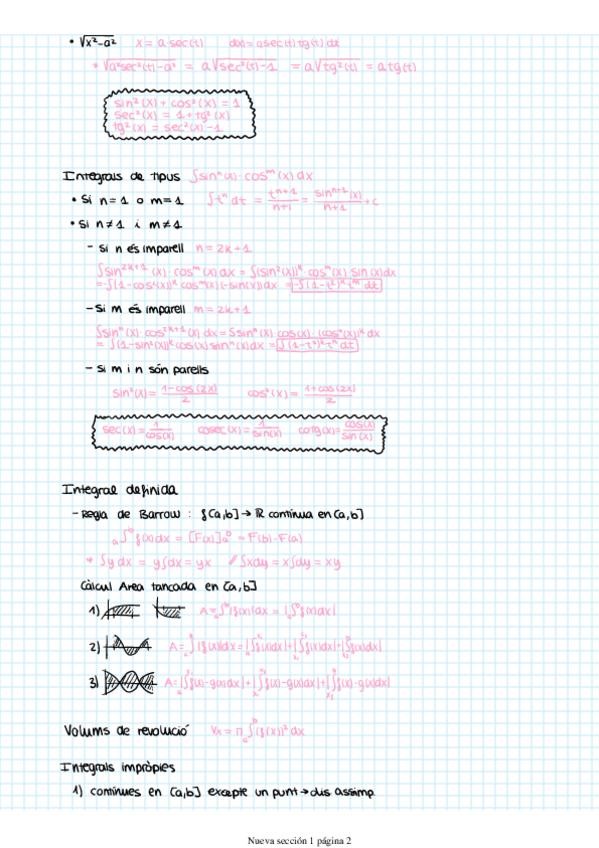 • √x²-a²   x = a sec(t)   d(x) = a sec(t) tg(t) dt
* √a²sec²(t)-a² = a√sec²(t)-1 = a√tg²(t) = a tg(t)
sin²(x) + cos²(x) = 1
sec²(x) = 1 + tg²(x)
tg²(x) = sec²(x) - 1
Integrals de tipus ∫sinⁿ(x)·cosᵐ(x) dx
• Si n=1 o m=1   ∫tⁿ dt = tⁿ⁺¹/n+1 = sinⁿ⁺¹(x)/n+1 + c
• Si n≠1 i m≠1
- Si n és imparell n = 2k+1
∫sin²ᵏ⁺¹(x)·cosᵐ(x) dx = ∫(sin²(x))ᵏ·cosᵐ(x)·sin(x)dx
= -∫(1-cos²(x))ᵏ cosᵐ(x)(-sin(x))dx = -∫(1-t²)ᵏ tᵐ dt
- Si m és imparell m = 2k+1
∫sinⁿ(x)·cos²ᵏ⁺¹(x) dx = ∫sinⁿ(x)·cos(x)·(cos²(x))ᵏ dx
= ∫(1-sin²(x))ᵏ cos(x) sinⁿ(x)dx = ∫(1-t²)ᵏ tⁿ dt
- si m i n són parells
sin²(x) = 1-cos(2x)/2   cos²(x) = 1+cos(2x)/2
sec(x) = 1/cos(x)   cosec(x) = 1/sin(x)   cotg(x) = cos(x)/sin(x)
Integral definida
- Regla de Barrow: f[a,b] → ℝ contínua en [a,b]
ₐ∫ᵇ f(x)dx = [F(x)]ₐᵇ = F(b)-F(a)
* ∫y dx = y∫dx = yx // ∫xdy = x∫dy = xy
Càlcul Area tancada en [a,b]
1) A = ₐ∫ᵇ|f(x)|dx = |ₐ∫ᵇf(x)dx|
2) A = ₐ∫ᵇ|f(x)|dx = |∫f(x)dx|+|∫f(x)dx|+|∫f(x)dx|
3) A = |∫f(x)-g(x)dx|+|∫f(x)-g(x)dx|+|∫f(x)-g(x)dx|
Volums de revolució   Vx = π ₐ∫ᵇ(f(x))² dx
Integrals impròpies
1) contínues en [a,b] excepte un punt → dis assimp
Nueva sección 1 página 2